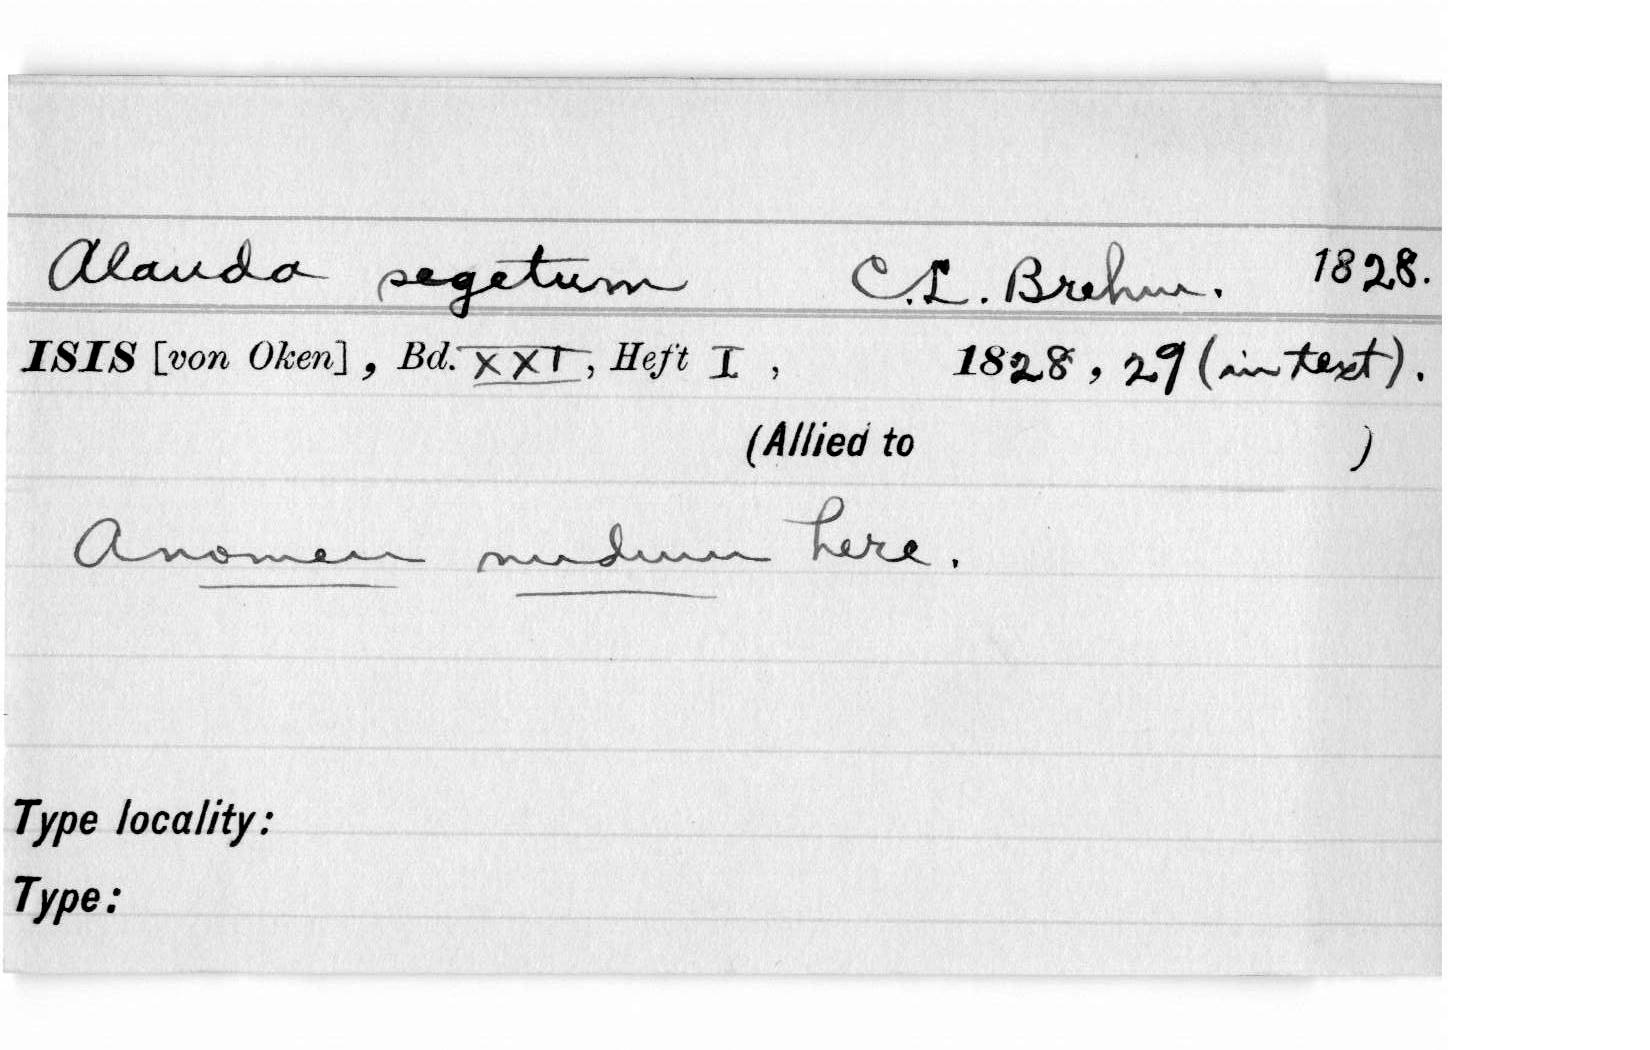 Alauda segetum C.L. Brehm. 1828.
ISIS [von Oken], Bd. XXI, Heft I, 1828, 29 (in text).
(Allied to )
A nomen nudum here.
Type locality:
Type: